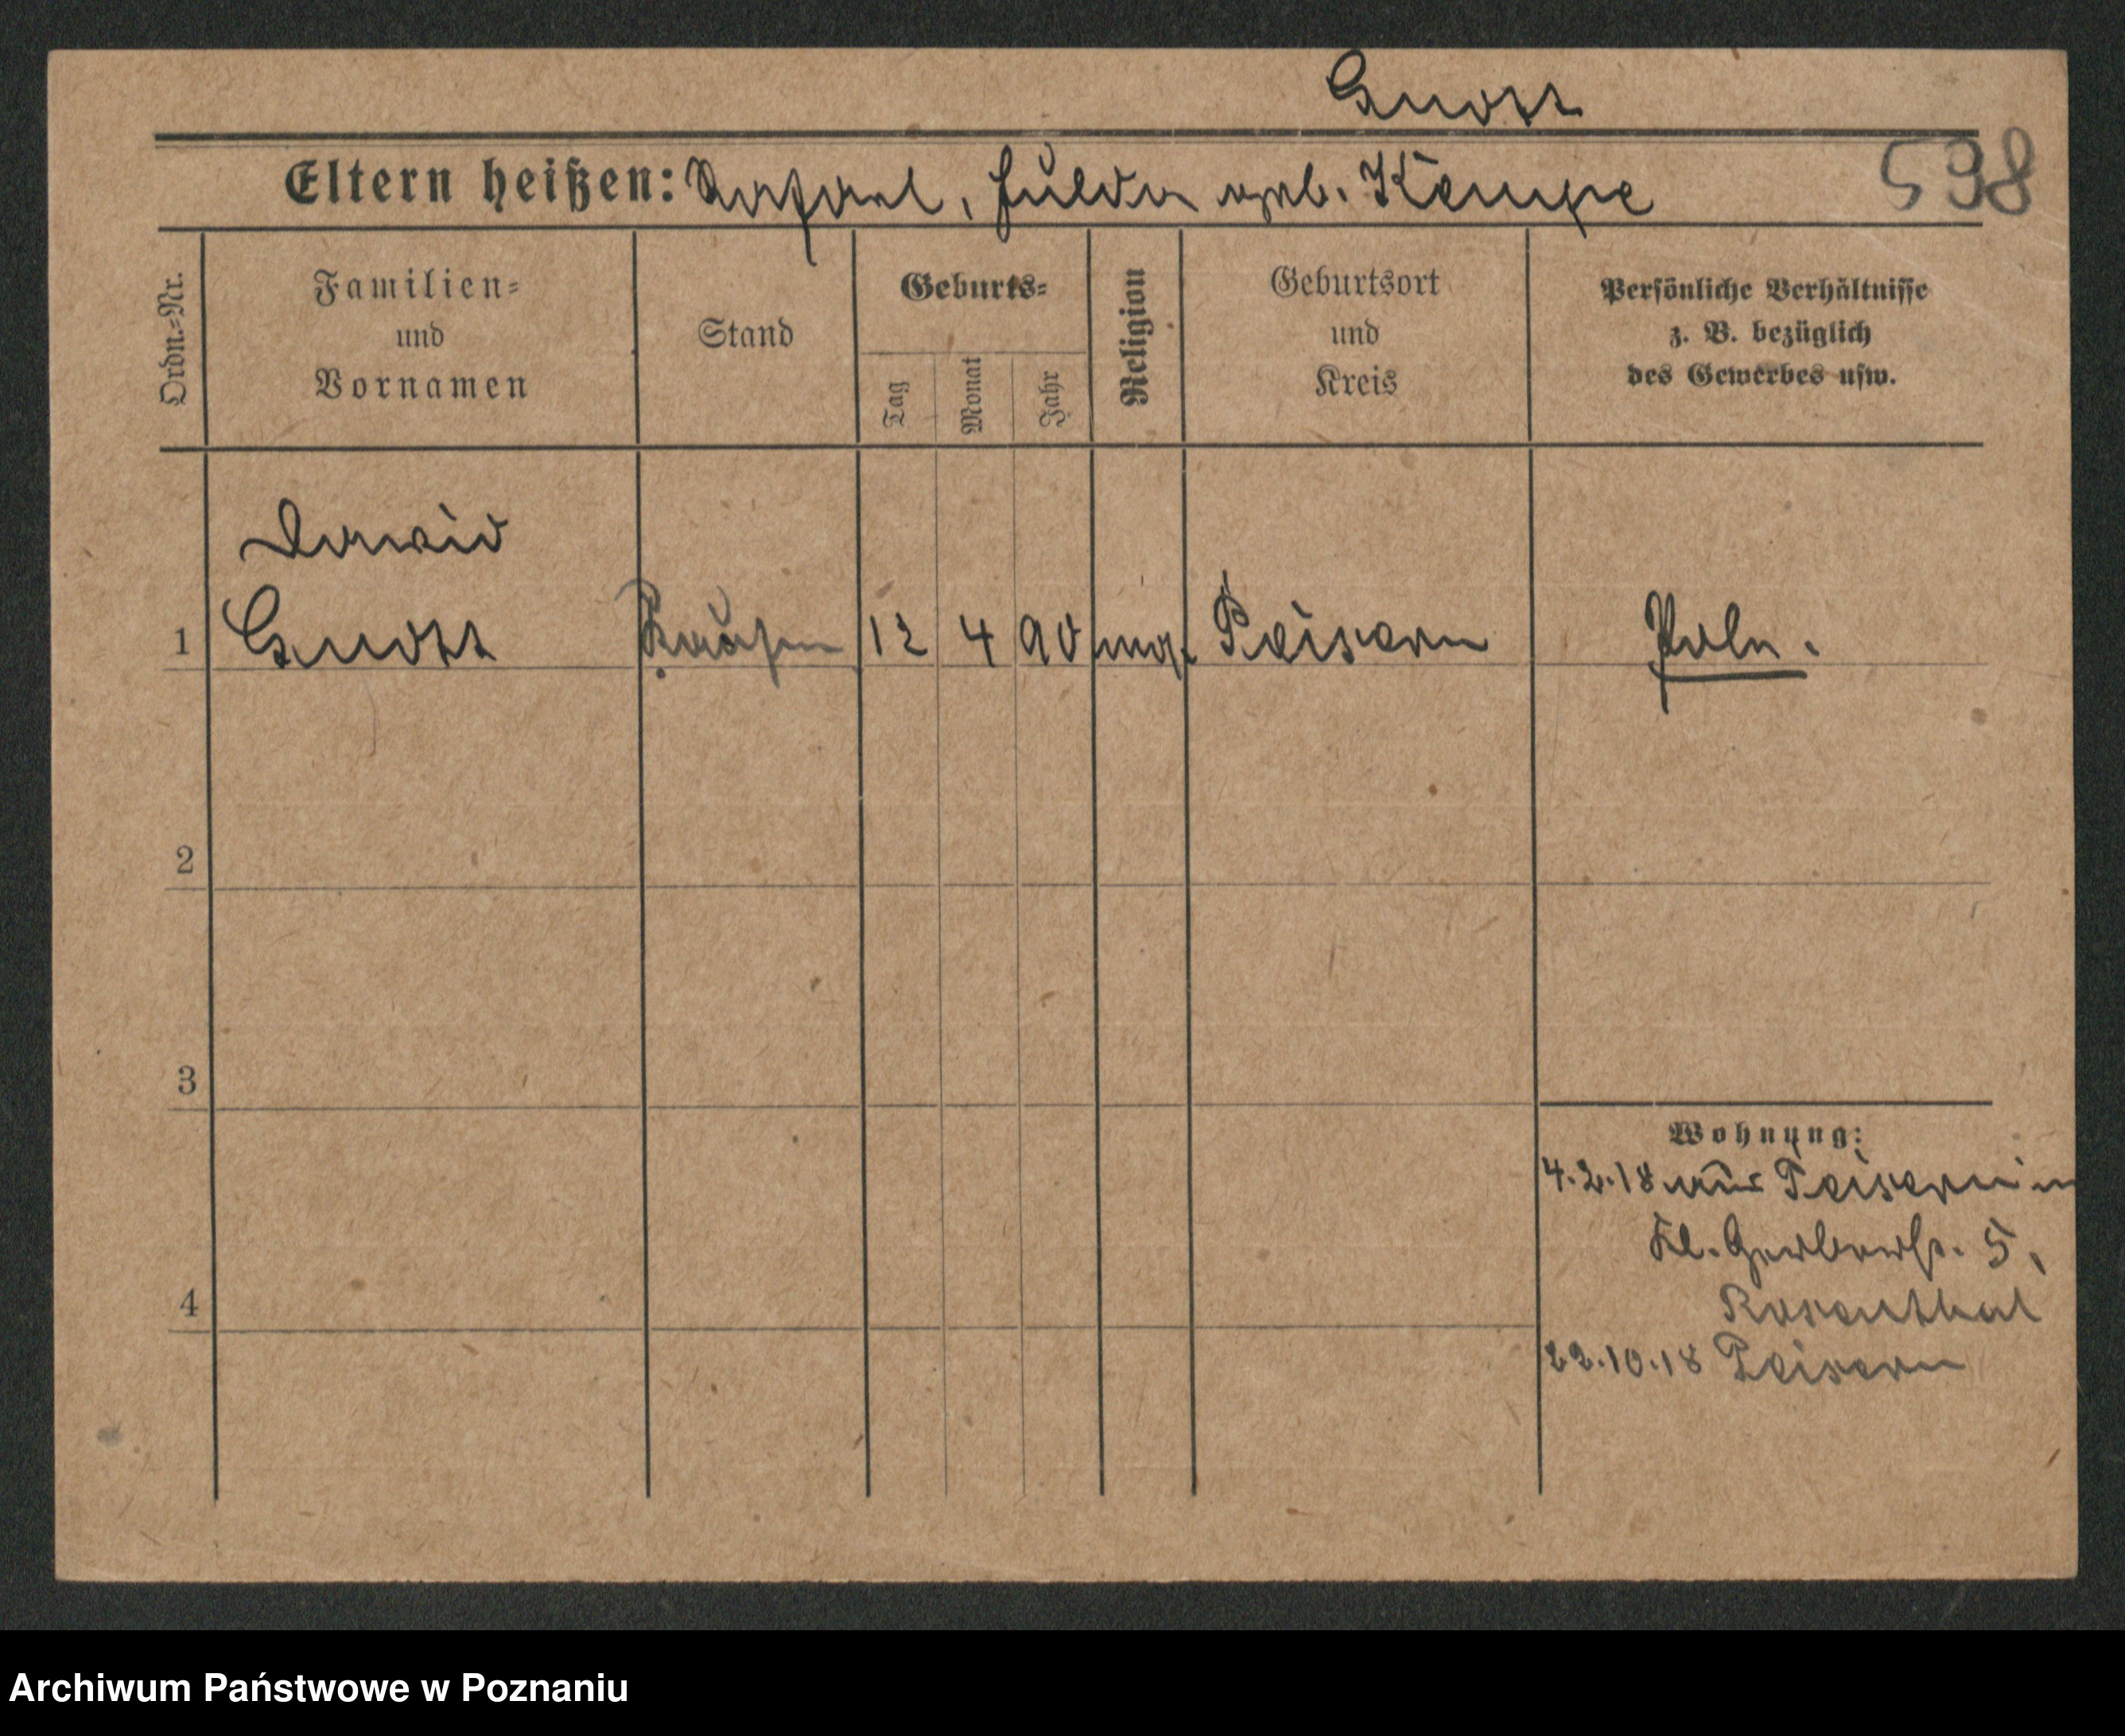 Gnott
Eltern heißen: Raphael, Hulda geb. Kempe
598
Ordn.=Nr.
Familien=
und
Vornamen
Stand
Geburts=
Tag
Monat
Jahr
Religion
Geburtsort
und
Kreis
Persönliche Verhältnisse
z. B. bezüglich
des Gewerbes usw.
David
1 Gnott 12 4 90 mos. Peisern Pole.
2
3
Wohnung:
4.2.18 aus Peisern in
Kl. Gerberstr. 5,
4 Rosenthal
22.10.18 Peisern
Archiwum Państwowe w Poznaniu